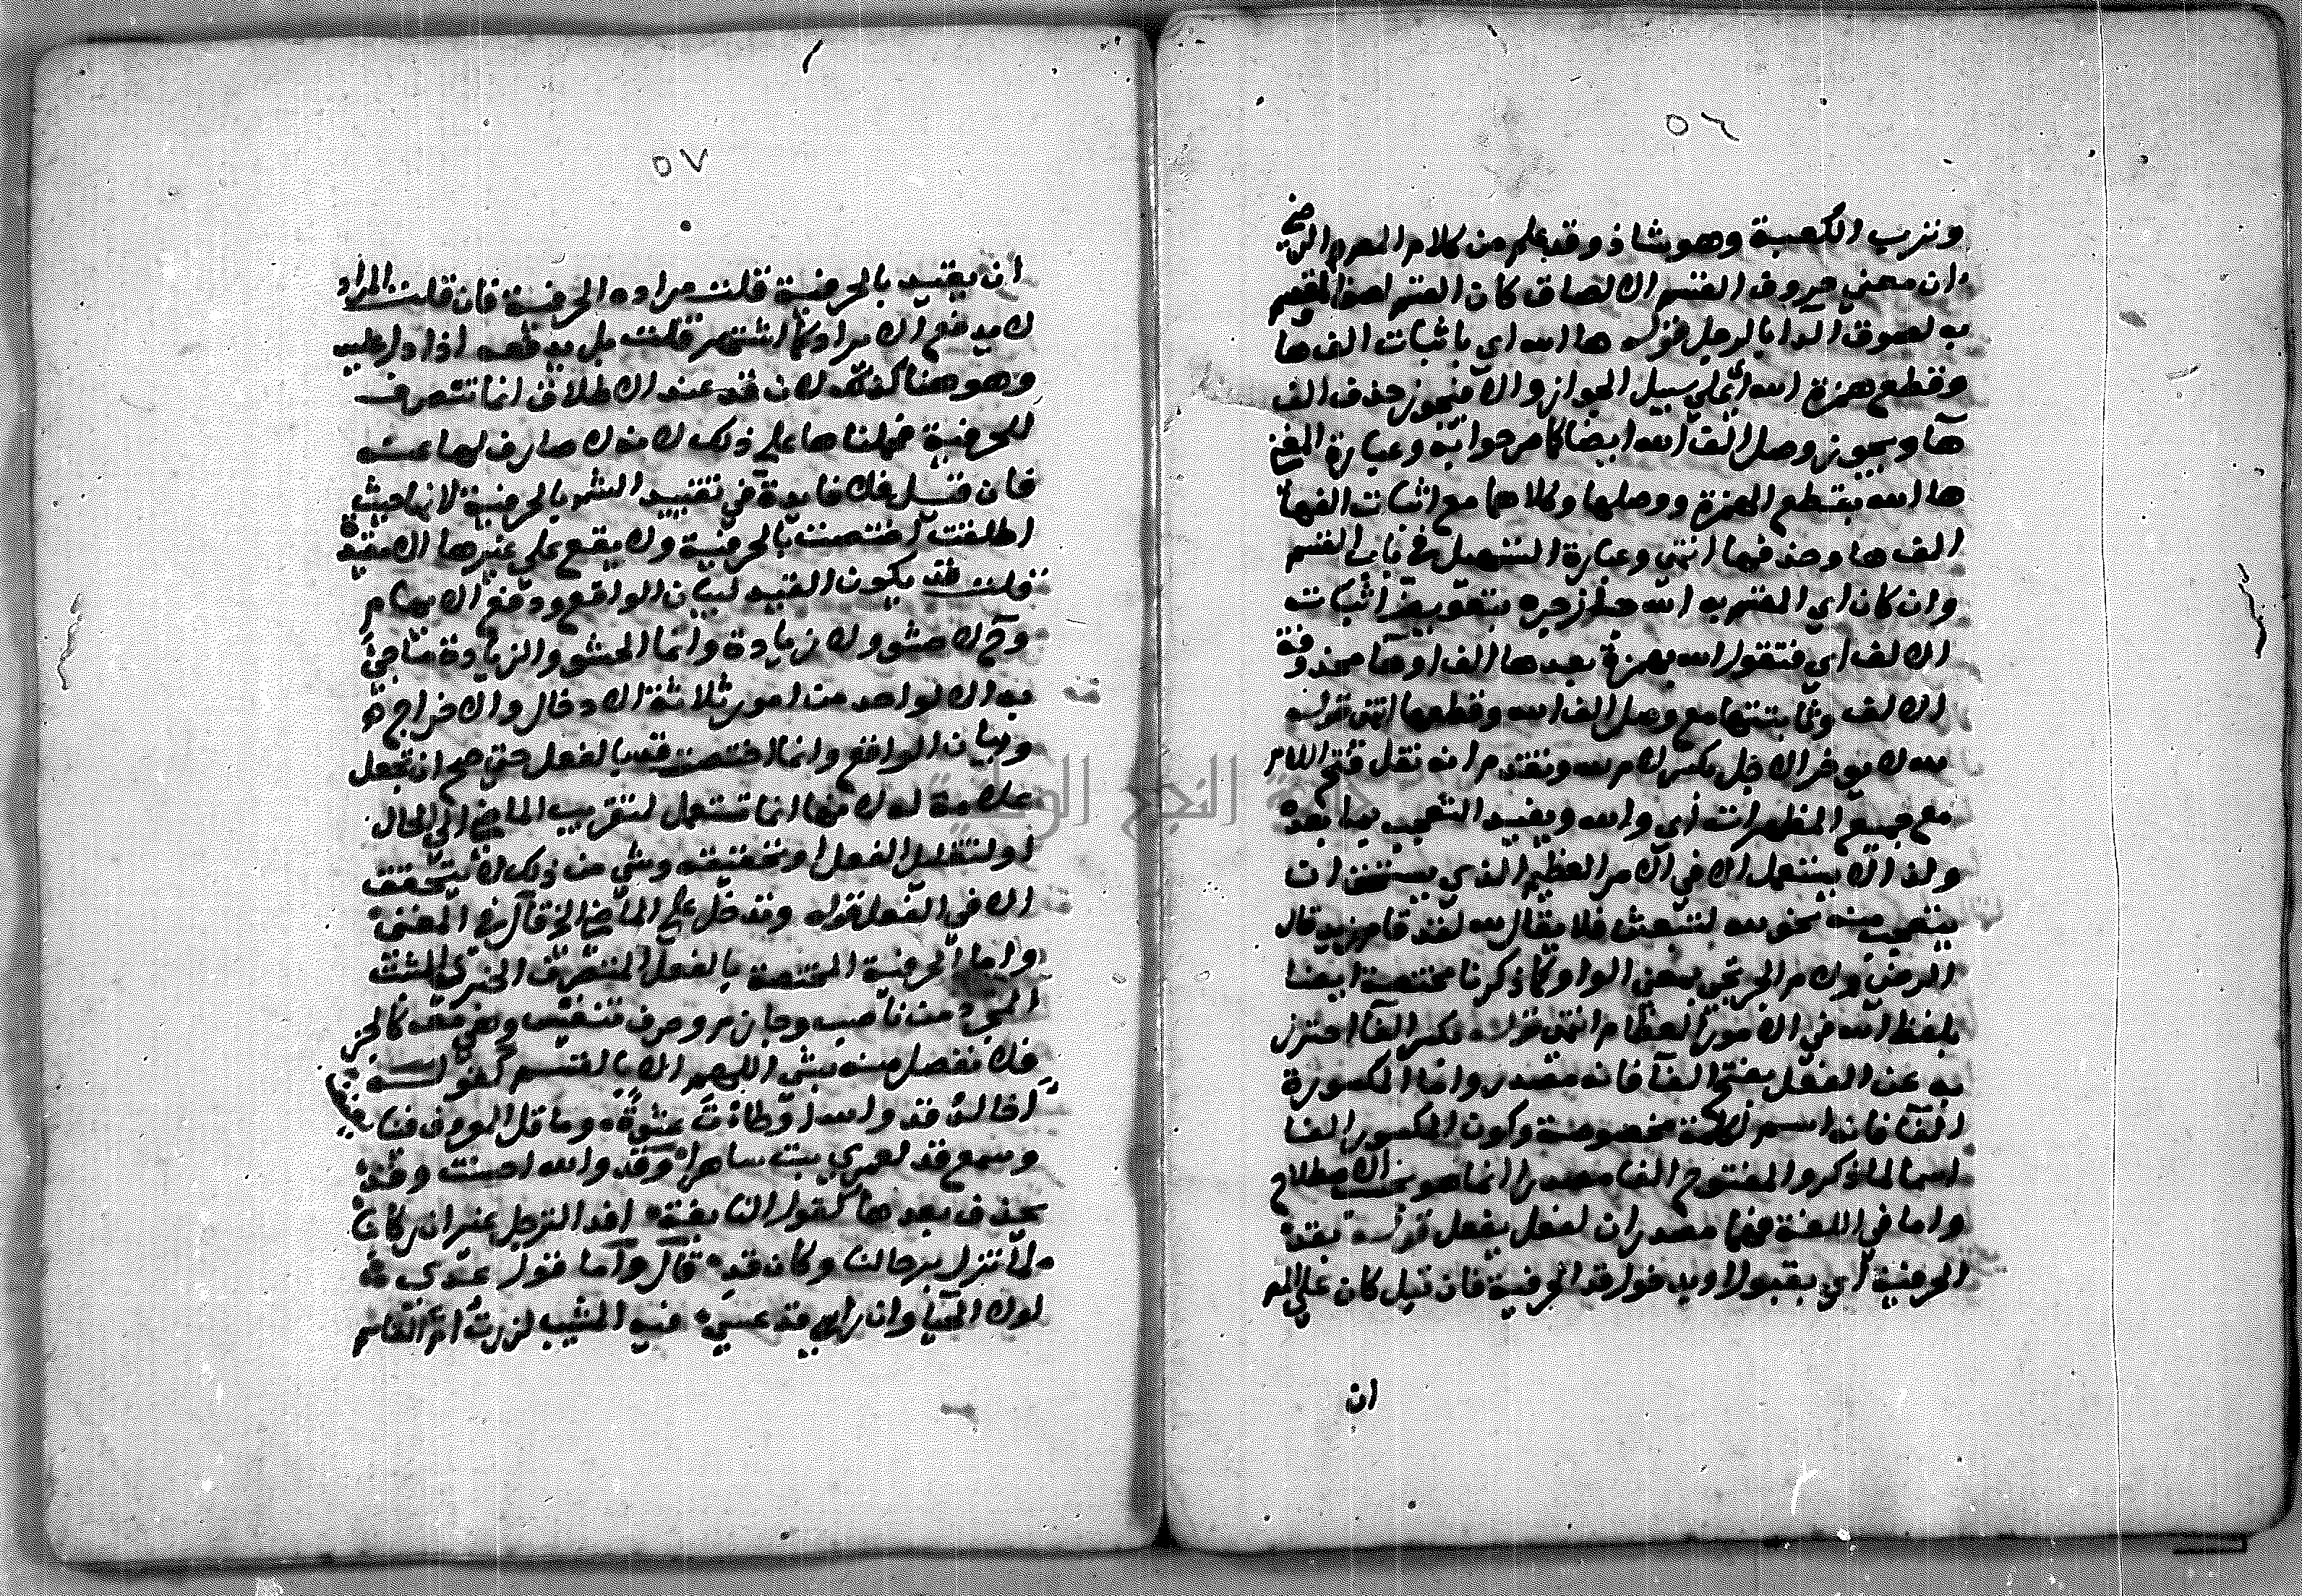 ٥٦
وترب الكعبة وهو شاذ وقد علم من كلام المصرم الرضي
ان معنى حروف القسم الالصاق كان القسم لصق المقسم
به لصوق الدابا لرجل قوله ها الله اي باثبات الف ها
وقطع همزة الله اي على سبيل الجواز والا فيجوز حذف الف
ها ويجوز وصل الف الله ايضا كما مر جوابه وعبارة المغني
ها الله بقطع الهمزة ووصلها وكلاهما مع اثبات الفها
الف ها وحذفها انتهى وعبارة التسهيل في باب القسم
وان كان اي المقسم به الله جاز جره بتعويض اثبات
الالف اي فتقول الله بهمزة بعدها الف او ها محذوفة
الالف وثابتتها مع وصل الف الله وقطعها انتهى قوله
لله لا يوخر الاجل بكسر لام لله وتقدم انه نقل فتح اللام
مع جميع المظهرات اي والله ويفيد التعجب فيما بعده
ولذا لا يستعمل الا في الامر العظيم الذي يستحق ان
يتعجب منه نحو لله لتبعثن فلا يقال لله لقد قام زيد قال
الرضى ولام الجر تجي بمعنى الواو كما ذكرنا مختصة ايضا
بلفظ الله في الامور العظام انتهى قوله بكسر الفا احترز
به عن الفعل بفتح الفا فانه مصدر واما المكسورة
الفا فانه اسم لكلمة مخصوصة وكون المكسور الفا
اسما لما ذكر والمفتوح الفا مصدرا انما هو بحسب الاصطلاح
واما في اللغة فهما مصدران لفعل يفعل قوله بقد
الحرفية اي بقبول او بدخول قد الحرفية فان قيل كان على المه
ان
٥٧
ان يقيد بالحرفية قلت مراده الحرفية فان قلت المراد
لا يدفع الايراد كما اشتهر قلت بل يدفعه اذا دل عليه
وهو هنا كذلك لان قد عند الاطلاق انما تنصرف
للحرفية فحملناها على ذلك لانه لا صارف لها عنه
فان قيل فلا فايدة في تقييد الش بالحرفية لانها حيث
اطلقت اختصت بالحرفية ولا يقع على غيرها الا مقيدة
قلت قد يكون القيد لبيان الواقع ودفع الايهام
وح لا حشو ولا زيادة وانما الحشو والزيادة ما جئ
به لا لواحد من امور ثلاثة الادخال والاخراج
وبيان الواقع وانما اختصت قد بالفعل حتى صح ان تجعل
علامة له لانها انما تستعمل لتقريب الماضي الى الحال
او لتقليل الفعل او تحقيقه وشي من ذلك لا يتحقق
الا في الفعل قوله وتدخل على الماضي الخ قال في المغني
واما الحرفية المختصة بالفعل المتصرف الخبري المثبت
المجرد من ناصب وجازم وحرف تنفيس وهي معه كالجز
فلا تفصل منه بشي اللهم الا بالقسم كقوله
اخالد قد والله اوطات عشوة وما قائل المعروف فينا يعنف
وسمع قد لعمري بت ساهرا وقد والله احسنت وقد
يحذف بعدها كقول النابغة افد الترحل غير ان ركابنا
لما تزل برحالنا وكان قد قال واما قول عدى
لولا الحيا وان راسي قد عسى فيه المشيب لزرت ام القاسم